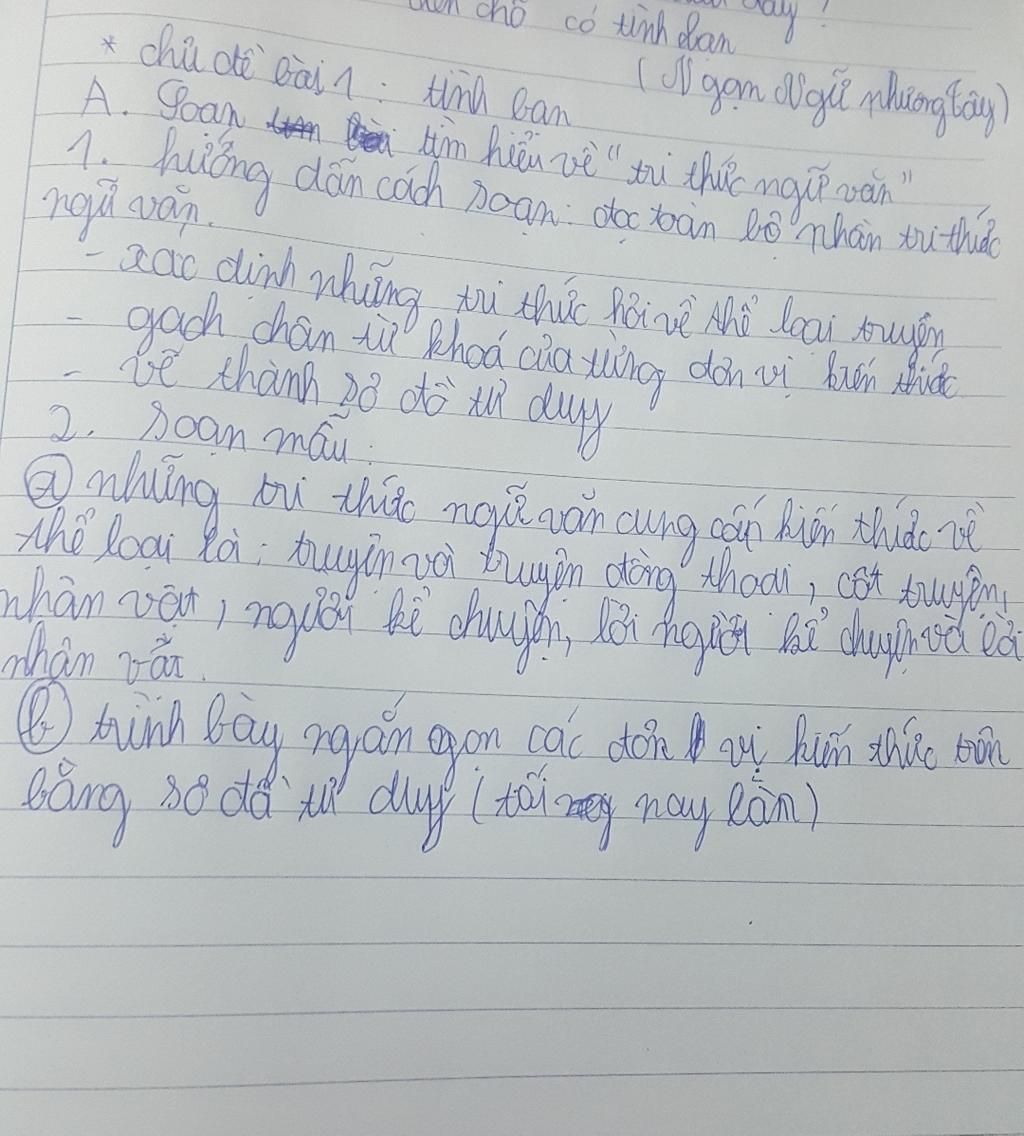 chỗ có tình bạn
(Ngạn Ngữ phương tây)
* chủ đề bài 1: tình bạn
A. Soạn tìm hiểu về "tri thức ngữ văn"
1. hướng dẫn cách soạn: đọc toàn bộ phần tri thức
ngữ văn.
- xác định những tri thức hỏi về thể loại truyện
- gạch chân từ khoá của từng đơn vị kiến thức
- vẽ thành sơ đồ tư duy
2. soạn mẫu:
a những tri thức ngữ văn cung cấp kiến thức về
thể loại là: truyện và truyện đồng thoại, cốt truyện,
nhân vật, người kể chuyện, lời người kể chuyện và lời
nhân vật.
b trình bày ngắn gọn các đơn vị kiến thức trên
bằng sơ đồ tư duy (tối nay làm)